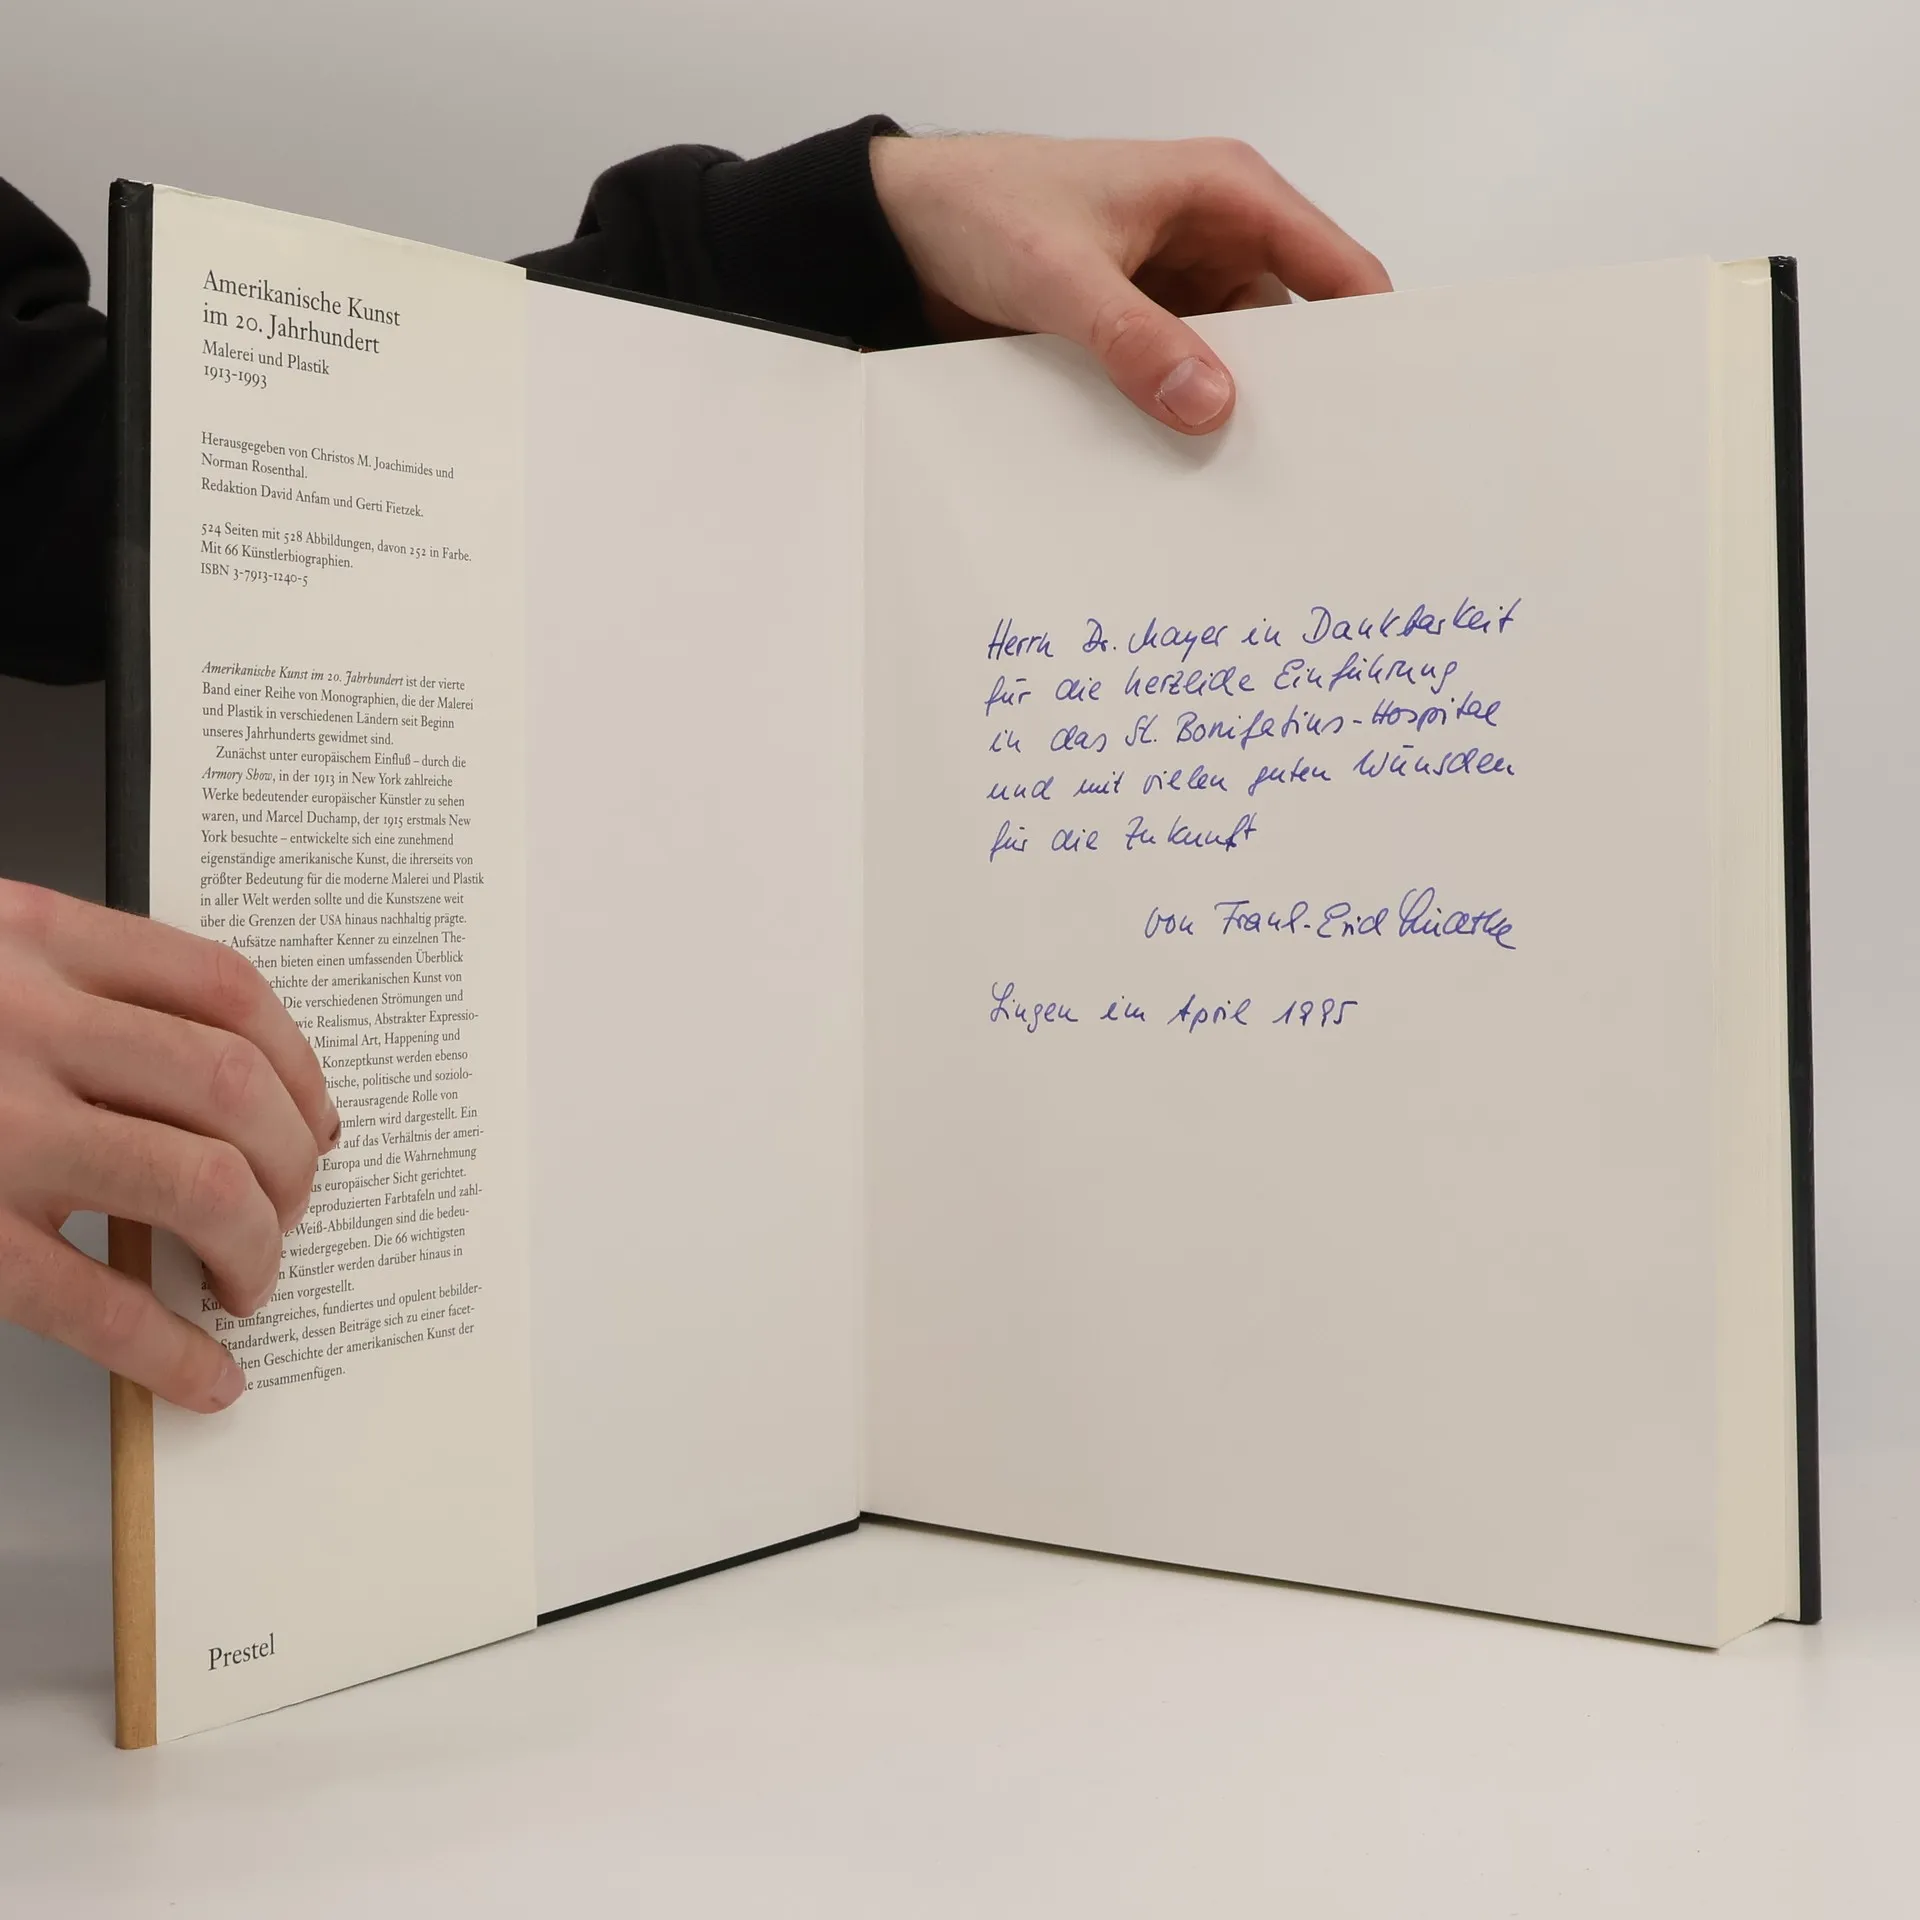 Amerikanische Kunst
im 20. Jahrhundert
Malerei und Plastik
1913-1993
Herausgegeben von Christos M. Joachimides und
Norman Rosenthal.
Redaktion David Anfam und Gerti Fietzek.
524 Seiten mit 528 Abbildungen, davon 252 in Farbe.
Mit 66 Künstlerbiographien.
ISBN 3-7913-1240-5
Amerikanische Kunst im 20. Jahrhundert ist der vierte
Band einer Reihe von Monographien, die der Malerei
und Plastik in verschiedenen Ländern seit Beginn
unseres Jahrhunderts gewidmet sind.
Zunächst unter europäischem Einfluß – durch die
Armory Show, in der 1913 in New York zahlreiche
Werke bedeutender europäischer Künstler zu sehen
waren, und Marcel Duchamp, der 1915 erstmals New
York besuchte – entwickelte sich eine zunehmend
eigenständige amerikanische Kunst, die ihrerseits von
größter Bedeutung für die moderne Malerei und Plastik
in aller Welt werden sollte und die Kunstszene weit
über die Grenzen der USA hinaus nachhaltig prägte.
Aufsätze namhafter Kenner zu einzelnen The-
bieten einen umfassenden Überblick
der amerikanischen Kunst von
Die verschiedenen Strömungen und
wie Realismus, Abstrakter Expressio-
Minimal Art, Happening und
Konzeptkunst werden ebenso
politische und soziolo-
herausragende Rolle von
wird dargestellt. Ein
auf das Verhältnis der ameri-
Europa und die Wahrnehmung
europäischer Sicht gerichtet.
reproduzierten Farbtafeln und zahl-
Weiß-Abbildungen sind die bedeu-
wiedergegeben. Die 66 wichtigsten
Künstler werden darüber hinaus in
vorgestellt.
Ein umfangreiches, fundiertes und opulent bebilder-
Standardwerk, dessen Beiträge sich zu einer facet-
Geschichte der amerikanischen Kunst der
zusammenfügen.
Prestel
Herrn Dr. Mayer in Dankbarkeit
für die herzliche Einführung
in das St. Bonifatius-Hospital
und mit vielen guten Wünschen
für die Zukunft
von Frank-Erich
Lingen im April 1995